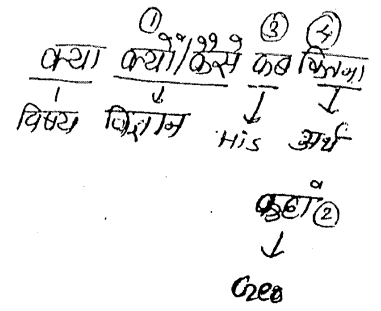 ① ③ ④
क्या क्यों/कैसे कब कितना
विषय विज्ञान His अर्थ
कहाँ ②
Geo